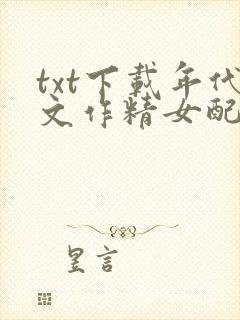 txt下載年代
文作精女配
昱言